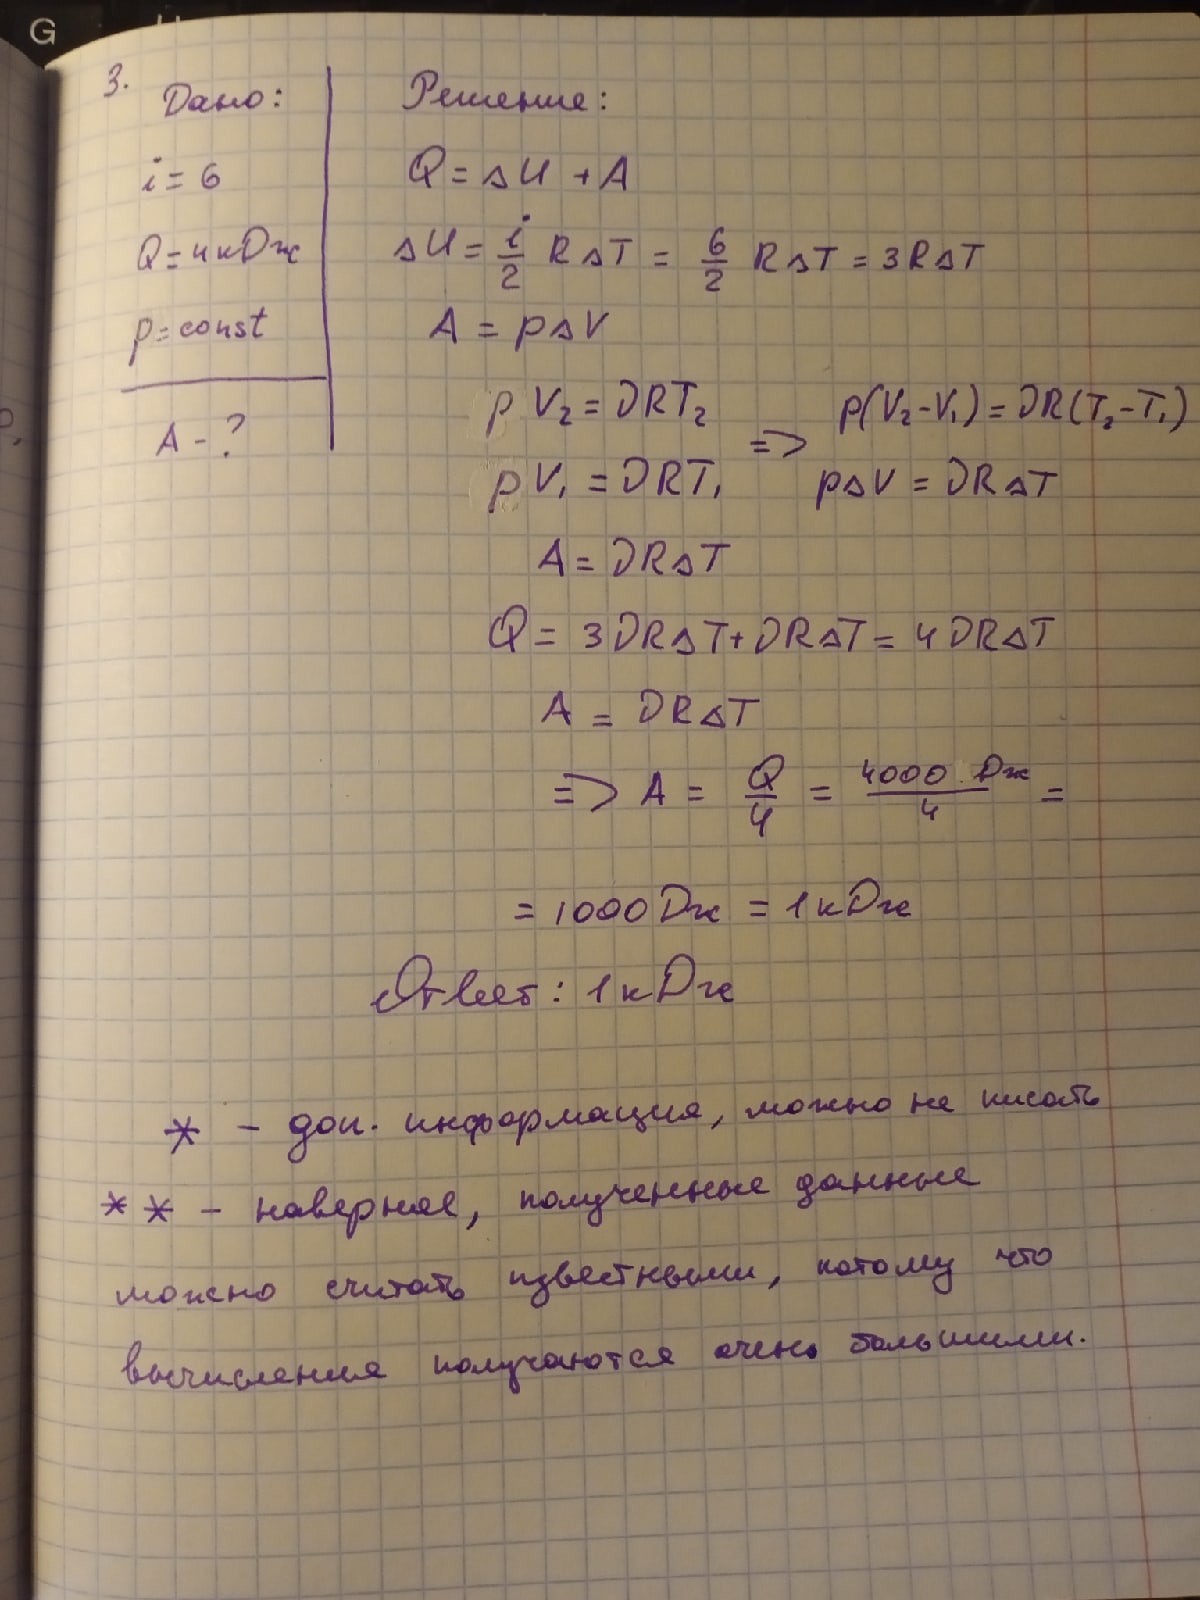 G
3.
Дано:
i = 6
Q = 4кДж
p = const
A - ?
Решение:
Q = ΔU + A
ΔU = i/2 RΔT = 6/2 RΔT = 3RΔT
A = pΔV
pV₂ = νRT₂
pV₁ = νRT₁
=> p(V₂-V₁) = νR(T₂-T₁)
pΔV = νRΔT
A = νRΔT
Q = 3νRΔT + νRΔT = 4νRΔT
A = νRΔT
=> A = Q/4 = 4000 Дж/4 =
= 1000 Дж = 1кДж
Ответ: 1кДж
* - доп. информация, можно не писать
** - наверное, полученные данные
можно считать известными, потому что
вычисления получаются очень большими.